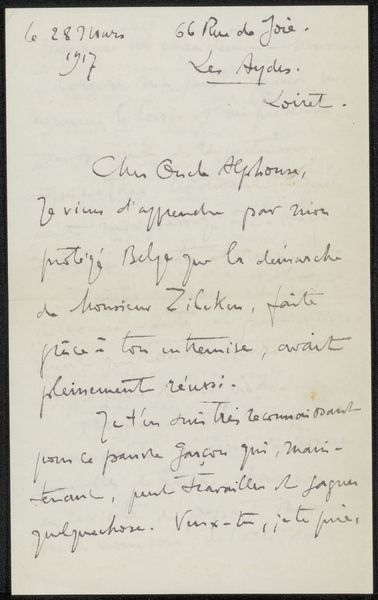 le 28 Mars 66 Rue de Joie.
1917 Les Aydes.
Loiret.
Cher Oncle Alphonse,
Je viens d'apprendre par mon
protégé Belge que la démarche
de Monsieur Zilcken, faite
grâce à ton entremise, avait
pleinement réussi.
Je t'en suis très reconnaissant
pour ce pauvre garçon qui, main-
tenant, peut travailler et gagner
quelquechose. Veux-tu, je te prie,